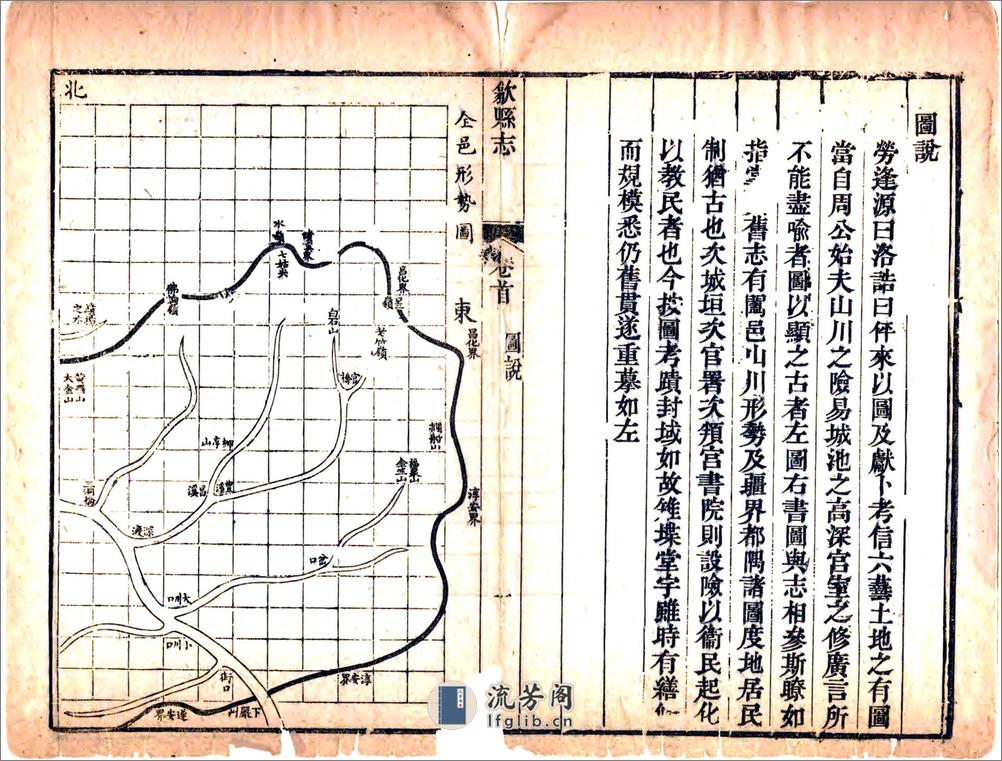 圖說
勞逢源曰洛誥曰伻來以圖及獻卜考信六藝土地之有圖
當自周公始夫山川之險易城池之高深官室之修廣言所
不能盡喻者圖以顯之古者左圖右書圖與志相參斯瞭如
指掌 舊志有闔邑山川形勢及疆界都隅諸圖度地居民
制猶古也次城垣次官署次頖宮書院則設險以衞民起化
以教民者也今按圖考蹟封域如故雉堞堂宇雖時有繕
而規模悉仍舊貫遂重摹如左
歙縣志
卷首
圖說
一
仝邑形勢圖
東
北
昌化界
淳安界
昌化界
老竹嶺
水嶺
七姑尖
佛論嶺
白石山
大金山
柳亭山
昌溪
深渡
金山
岔口
大川口
小川口
街口
淳安界
遂安界
下嚴州
流芳阁
lfglib.cn